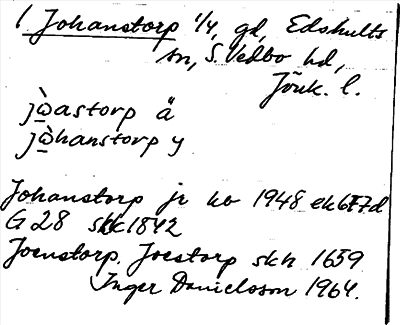 1 Johanstorp 1/4, gd, Edshults
sn, S. Vedbo hd,
Jönk. l.
jὼ̲astorp ä
jὼ̲hanstorp y
Johanstorp jr ko 1948 ek 6F7d
G 28 skk 1842
Joenstorp. Joestorp skh 1659
Inger Danielsson 1964.